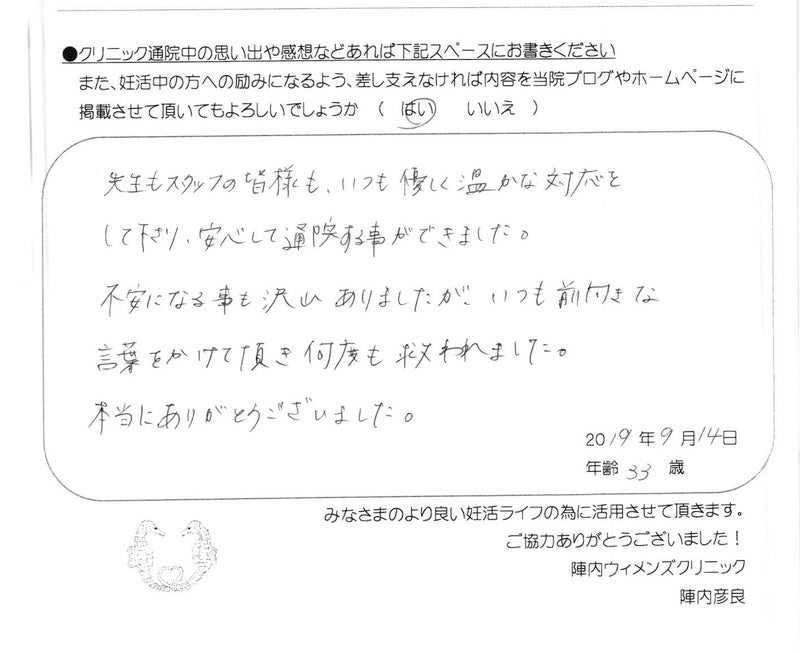 ●クリニック通院中の思い出や感想などあれば下記スペースにお書きください
また、妊活中の方への励みになるよう、差し支えなければ内容を当院ブログやホームページに
掲載させて頂いてもよろしいでしょうか （ はい いいえ ）
先生もスタッフの皆様も、いつも優しく温かな対応を
して下さり、安心して通院する事ができました。
不安になる事も沢山ありましたが、いつも前向きな
言葉をかけて頂き何度も救われました。
本当にありがとうございました。
2019年9月14日
年齢 33 歳
みなさまのより良い妊活ライフの為に活用させて頂きます。
ご協力ありがとうございました！
陣内ウィメンズクリニック
陣内彦良